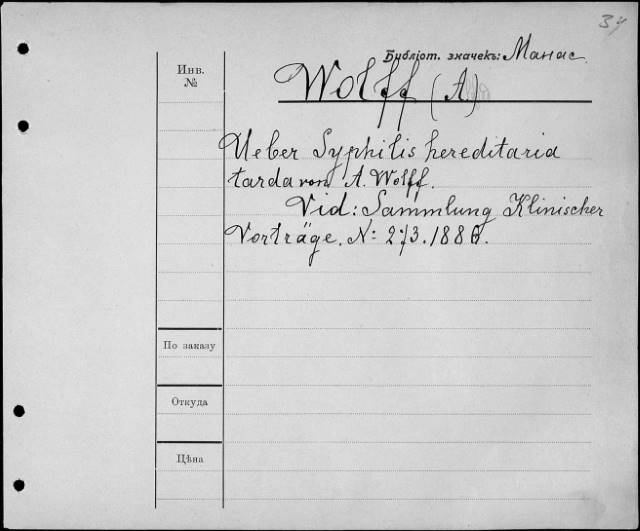 34
Библіот. значекъ: Манас
Инв.
№
Wolff (A.)
Ueber Syphilis hereditaria
tarda von A. Wolff.
Vid: Sammlung Klinischer
Vorträge. N: 273. 1886.
По заказу
Откуда
Цѣна